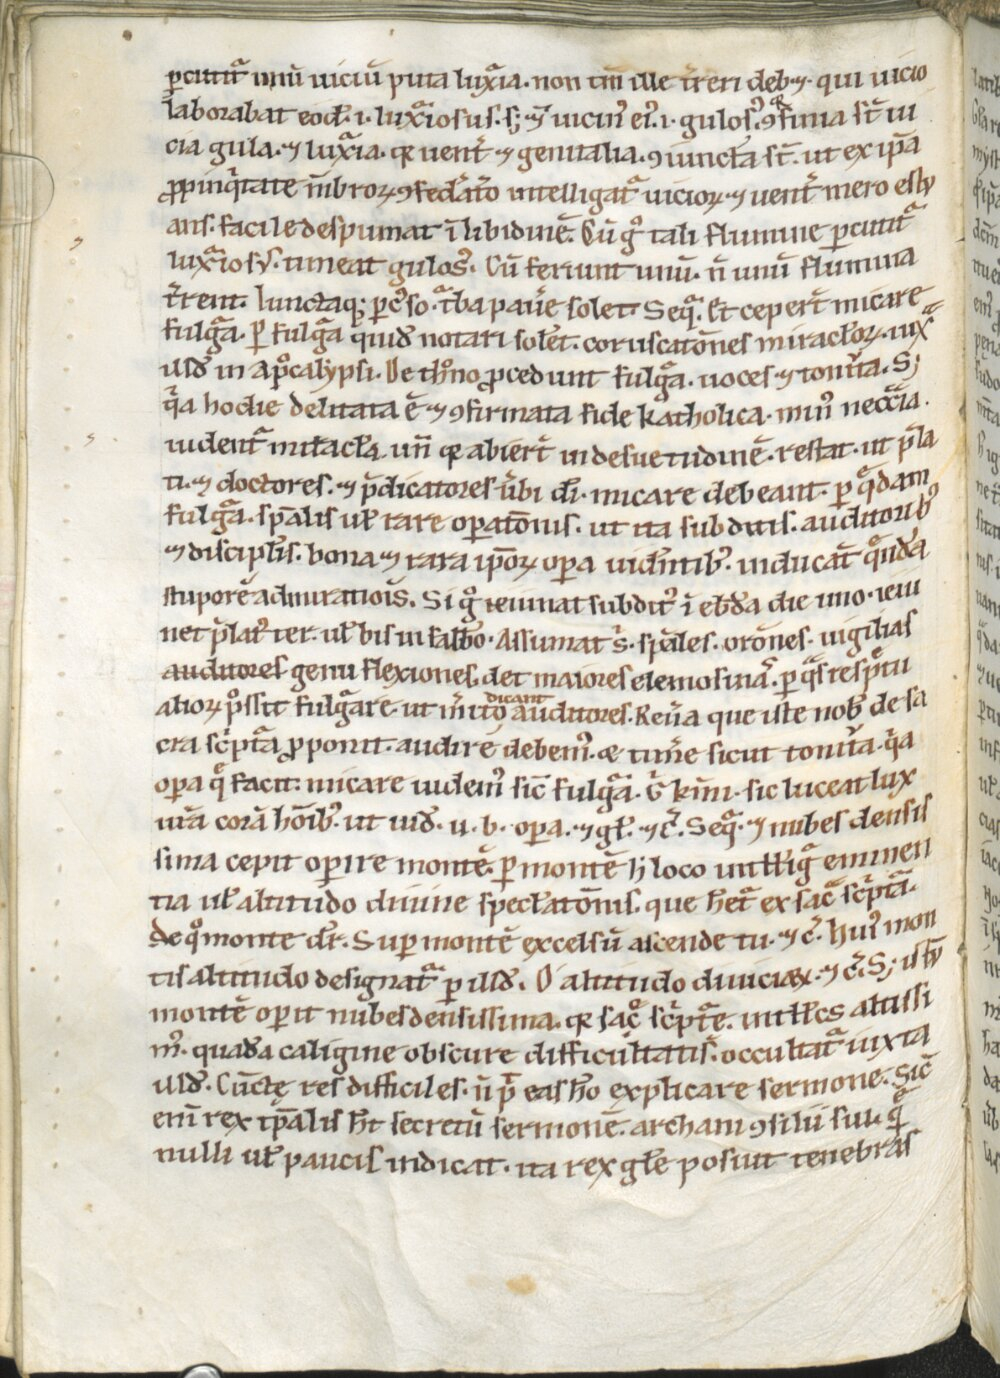 p̱cutitᷓ unū uiciū puta luxᷓia. non tm̄ ille t̄reri deb⁊. qui uicio
laborabat eod̄. i. luxᷓiosus. s; ⁊ uicin᷒ ei᷒. i. gulos᷒. ꝯfinia st̄ ui
cia gula. ⁊ luxᷓia. qꝛ uent̄ ⁊ genitalia. ꝯiuncta st̄. ut ex ip̄a
ꝓpinq̇tate m̄broꝝ ꝯfed̓at̓o intelligatᷓ uicioꝝ. ⁊ uent̄ mero estu
ans. facile despumat ī libidinē. Cū g̊ tali flumine p̱cutitᷓ
luxᷓiosus. timeat gulos᷒. Cū feriunt unū. n̄ unū flumina
t̄rent. Iunctaq; p̱c̓so tᷓba paue̓ solet. Seqᷓ. Et cep̱er̄t micare
fulgᷓa. P̱ fulgᷓa quid notari solet. coruscatōnes miracl̓oꝝ. iuxᷓ
illd̓ in apocalypsi. De thͦno ꝓcedunt fulgᷓa. uoces ⁊ tonit̓a. S;
q̇a hodie delitata ē ⁊ ꝯfirmata fide katholica. min᷒ neccͥa.
uidentᷓ miracl̓a. un̄ qꝛ abier̄t in desuetudinē. restat. ut p̄la
ti. ⁊ doctores. ⁊ p̄dicatores ūbi di̓. micare debeant. p̱ q̄dam
fulgᷓa. sp̄alis ul̓ rare op̱atōnis. ut ita subditis. auditorib᷒
⁊ discipl̓is. bona ⁊ rara ip̄oꝝ op̱a uide̓ntib᷒. inducāt q̊nd̓a
stuporē admirationis. Si g̊ ieiunat subdit᷒ ī ebd̓a die uno. ieiu
net p̄lat᷒ ter. ul̓ bis in sabb̓o. Assumat s̄. sp̄ales. orōnes. uigilias
auditores genu flexiones. det maiores elemosinas. p̱ q̄s respᷓtu
alioꝝ possit fulgᷓare. ut m̄ito dicant auditores. Reuͬa que iste nob̄ de sa
cra sc̓ptᷓa ꝓponit. audire debem᷒. ⁊ time̓ sicut tonit̓a. q̇a
op̱a q̄ facit. micare uidem᷒ sic̄ fulgᷓa. G̊ kͥm̄i. sic luceat lux
ura̓ corā hōib᷒. ut uid̓. u. b. op̱a. ⁊ gl̓. ⁊ c̄. Seqᷓ. ⁊ nubes densis
sima cepit op̱ire montē. p̱ montē h̓ loco intelligᷓ eminen
tia ul̓ altitudo diuine spect̓atōnis. que hetᷓ ex sac̓ sc̓ptᷓa.
de q̊ monte dr̄. Sup̱ montē excelsū ascende tu. ⁊ c̄. Hui᷒ mon
tis altitudo designatᷓ p̱ illd̓. O altitudo diuiciaꝝ. ⁊ c̄. S; istū
montē op̱it nubes densissima. qꝛ sac̓ sc̓ptᷓe. intell̓cs altissi
m᷒. quada̓ caligine obscure difficultatis. occultatᷓ iuxta
illd̓. Cunctę res difficiles. n̄ p̄t eas ho̓ explicare sermone. Sic̄
eni̓ rex tp̄alis ht̄ secretū sermonē. archani ꝯsilii sui. q̄
nulli ul̓ paucis indicat. ita rex gl̓e posuit tenebras